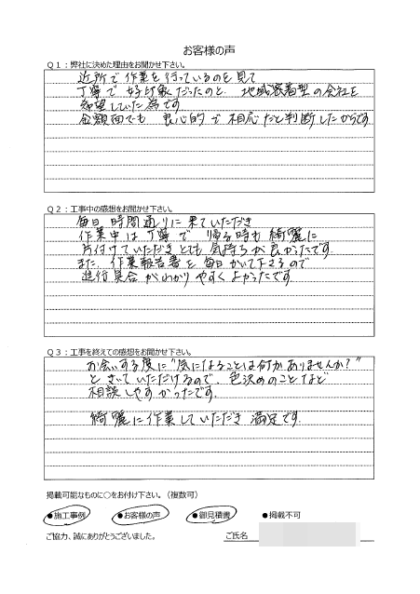 お客様の声
Q1：弊社に決めた理由をお聞かせ下さい。
近所で作業を行っているのを見て
丁寧で好印象だったのと、地域密着型の会社を
希望していた為です
金額面でも良心的で相応だと判断したからです
Q2：工事中の感想をお聞かせ下さい。
毎日時間通りに来ていただき
作業中は丁寧で帰る時も綺麗に
片付けていただきとても気持ちが良かったです
また、作業報告書を毎日かいて下さるので
進行具合がわかりやすくよかったです
Q3：工事を終えての感想をお聞かせ下さい。
お会いする度に"気になることは何かありませんか？"
ときいていただけるので、色決めのことなど
相談しやすかったです。
綺麗に作業していただき満足です。
掲載可能なものに○をお付け下さい。（複数可）
●施工事例 ●お客様の声 ●御見積書 ●掲載不可
ご協力、誠にありがとうございました。 ご氏名